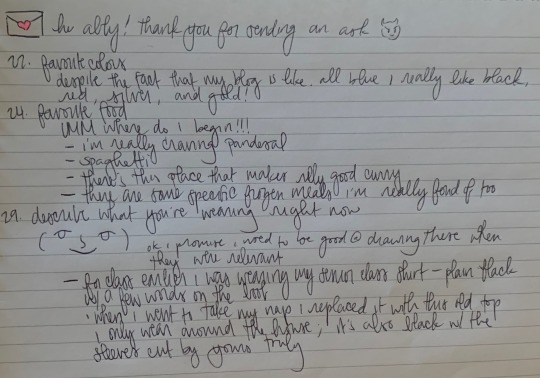 hi ally! thank you for sending an ask
22. favorite colors
despite the fact that my blog is like all blue i really like black,
red, silver, and gold!
24. favorite food
UMM where do i begin!!!
- i'm really craving pandesal
- spaghetti
- there's this place that makes rlly good curry
- there are some specific frozen meals i'm really fond of too
29. describe what you're wearing right now
ok i promise i used to be good @ drawing these when
they were relevant
- for class earlier i was wearing my senior class shirt - plain black
w/ a few words on the
when i went to take my nap i replaced it with this old top
i only wear around the house, it's also black w/ the
sleeves cut by yours truly